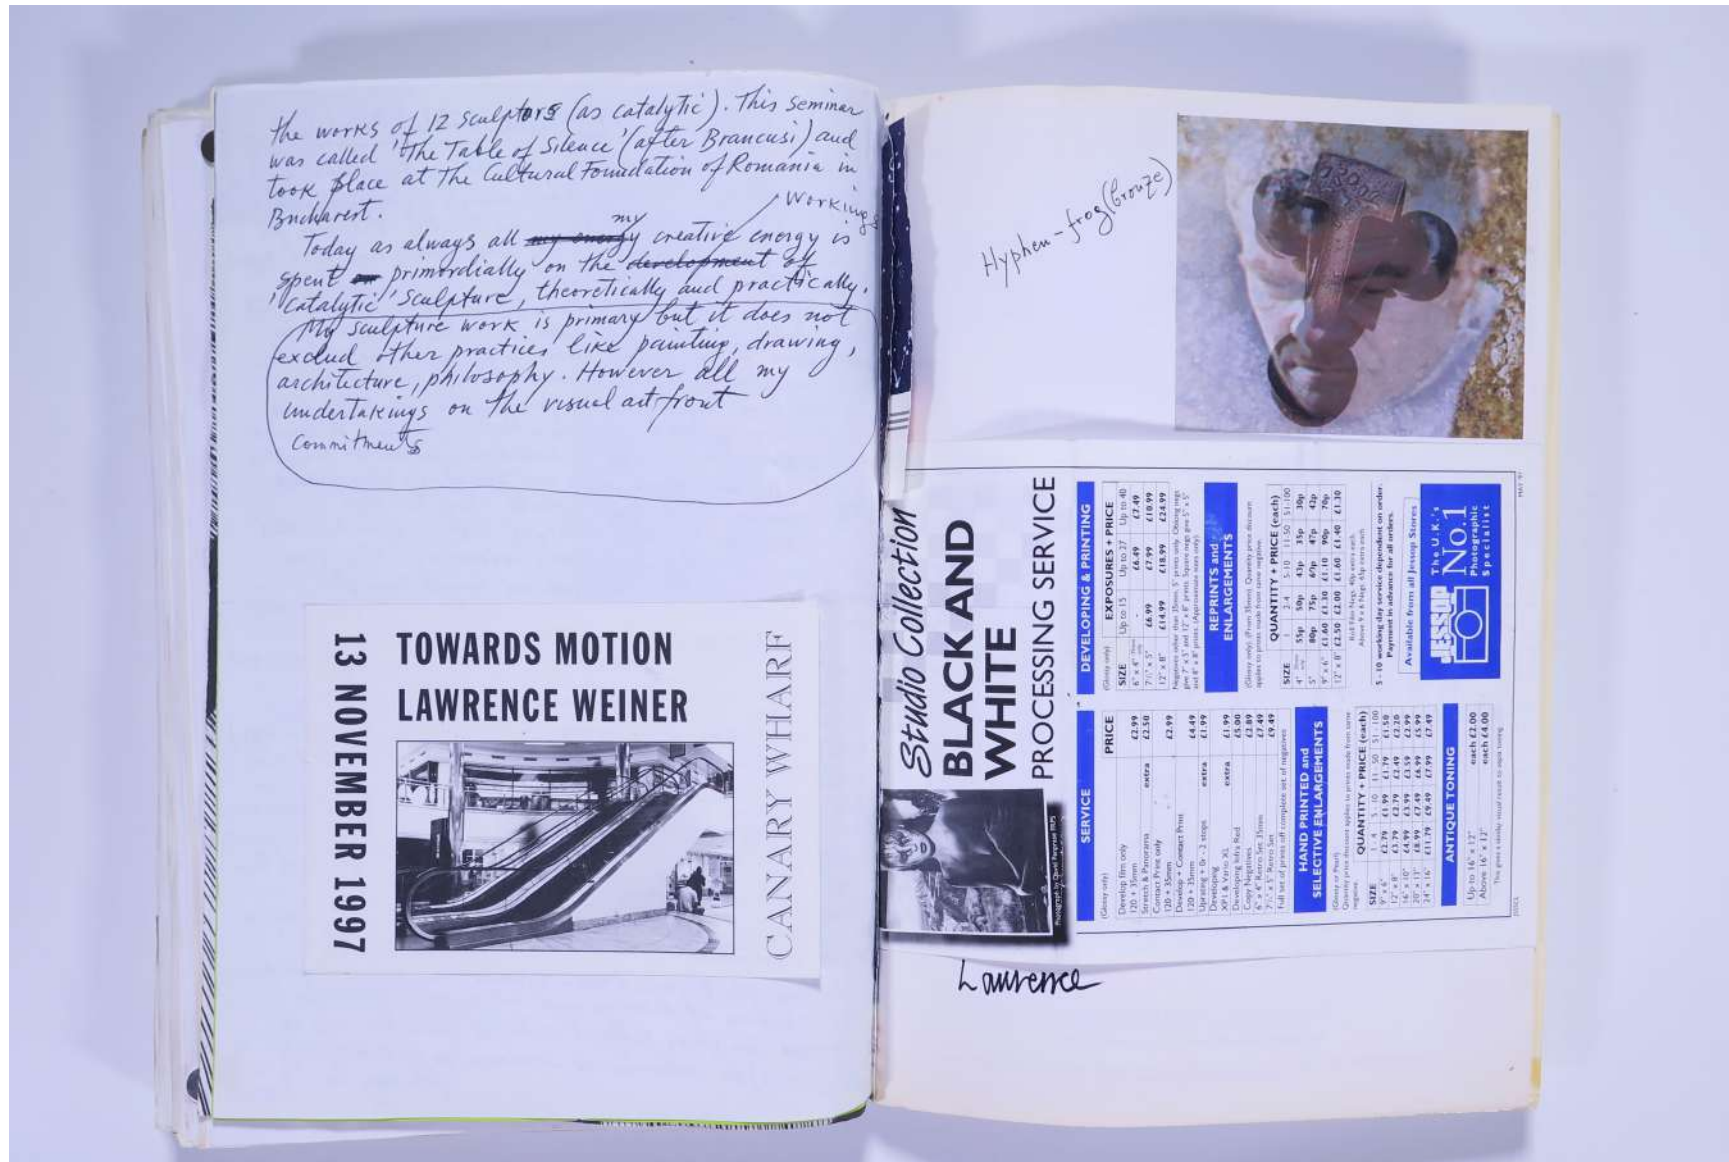 the works of 12 sculptors (as catalytic). This seminar
was called 'The Table of Silence' (after Brancusi) and
took place at the Cultural Foundation of Romania in
Bucharest.
Workings
my
Today as always all my energy creative energy is
spent primordially on the development of
'catalytic' sculpture, theoretically and practically.
My sculpture work is primary but it does not
exclud other practices like painting, drawing,
architecture, philosophy. However all my
undertakings on the visual art front
commitments
13 NOVEMBER 1997
TOWARDS MOTION
LAWRENCE WEINER
CANARY WHARF
Hyphen-frog (bronze)
Studio Collection
BLACK AND
WHITE
PROCESSING SERVICE
SERVICE
(Glossy only) PRICE
Develop film only
120 + 35mm £2.99
Stretch & Panorama extra £2.50
Contact Print only
120 + 35mm £2.99
Develop + Contact Print
120 + 35mm £4.49
Uprating + Or - 2 stops extra £1.99
Developing
XP1 & Vario XL extra £1.99
Developing Infra Red £5.00
Copy Negatives £2.89
6" x 4" Retro Set 35mm £7.49
7½" x 5" Retro Set £9.49
Full set of prints off complete set of negatives
HAND PRINTED and
SELECTIVE ENLARGEMENTS
(Glossy or Pearl)
Quantity price discount applies to prints made from same
negative.
QUANTITY + PRICE (each)
SIZE 1 - 4 5 - 10 11 - 50 51 - 100
9" x 6" £2.79 £1.99 £1.79 £1.50
12" x 8" £3.79 £2.79 £2.49 £2.20
16" x 10" £4.99 £3.99 £3.59 £2.99
20" x 13" £8.99 £7.49 £6.99 £5.99
24" x 16" £11.79 £9.49 £7.99 £7.49
ANTIQUE TONING
Up to 16" x 12" each £2.00
Above 16" x 12" each £4.00
DEVELOPING & PRINTING
(Glossy only) EXPOSURES + PRICE
SIZE Up to 15 Up to 27 Up to 40
6" x 4" - £6.49 £7.49
7½" x 5" £6.99 £7.99 £10.99
12" x 8" £14.99 £18.99 £24.99
Negatives other than 35mm, 5" prints only. Oblong negs
give 7" x 5" and 12" x 8" prints. Square negs give 5" x 5"
and 8" x 8" prints. (Approximate sizes only)
REPRINTS and
ENLARGEMENTS
(Glossy only) (From 35mm) Quantity price discount
applies to prints made from same negative.
QUANTITY + PRICE (each)
SIZE 1 2-4 5-10 11-50 51-100
4" 55p 50p 43p 35p 30p
5" 80p 75p 69p 47p 42p
9" x 6" £1.60 £1.30 £1.10 90p 70p
12" x 8" £2.50 £2.00 £1.60 £1.40 £1.30
5 - 10 working day service dependent on order.
Payment in advance for all orders.
Available from all Jessop Stores
JESSOP
The U.K.'s
No.1
Photographic
Specialist
MAY 97
Lawrence